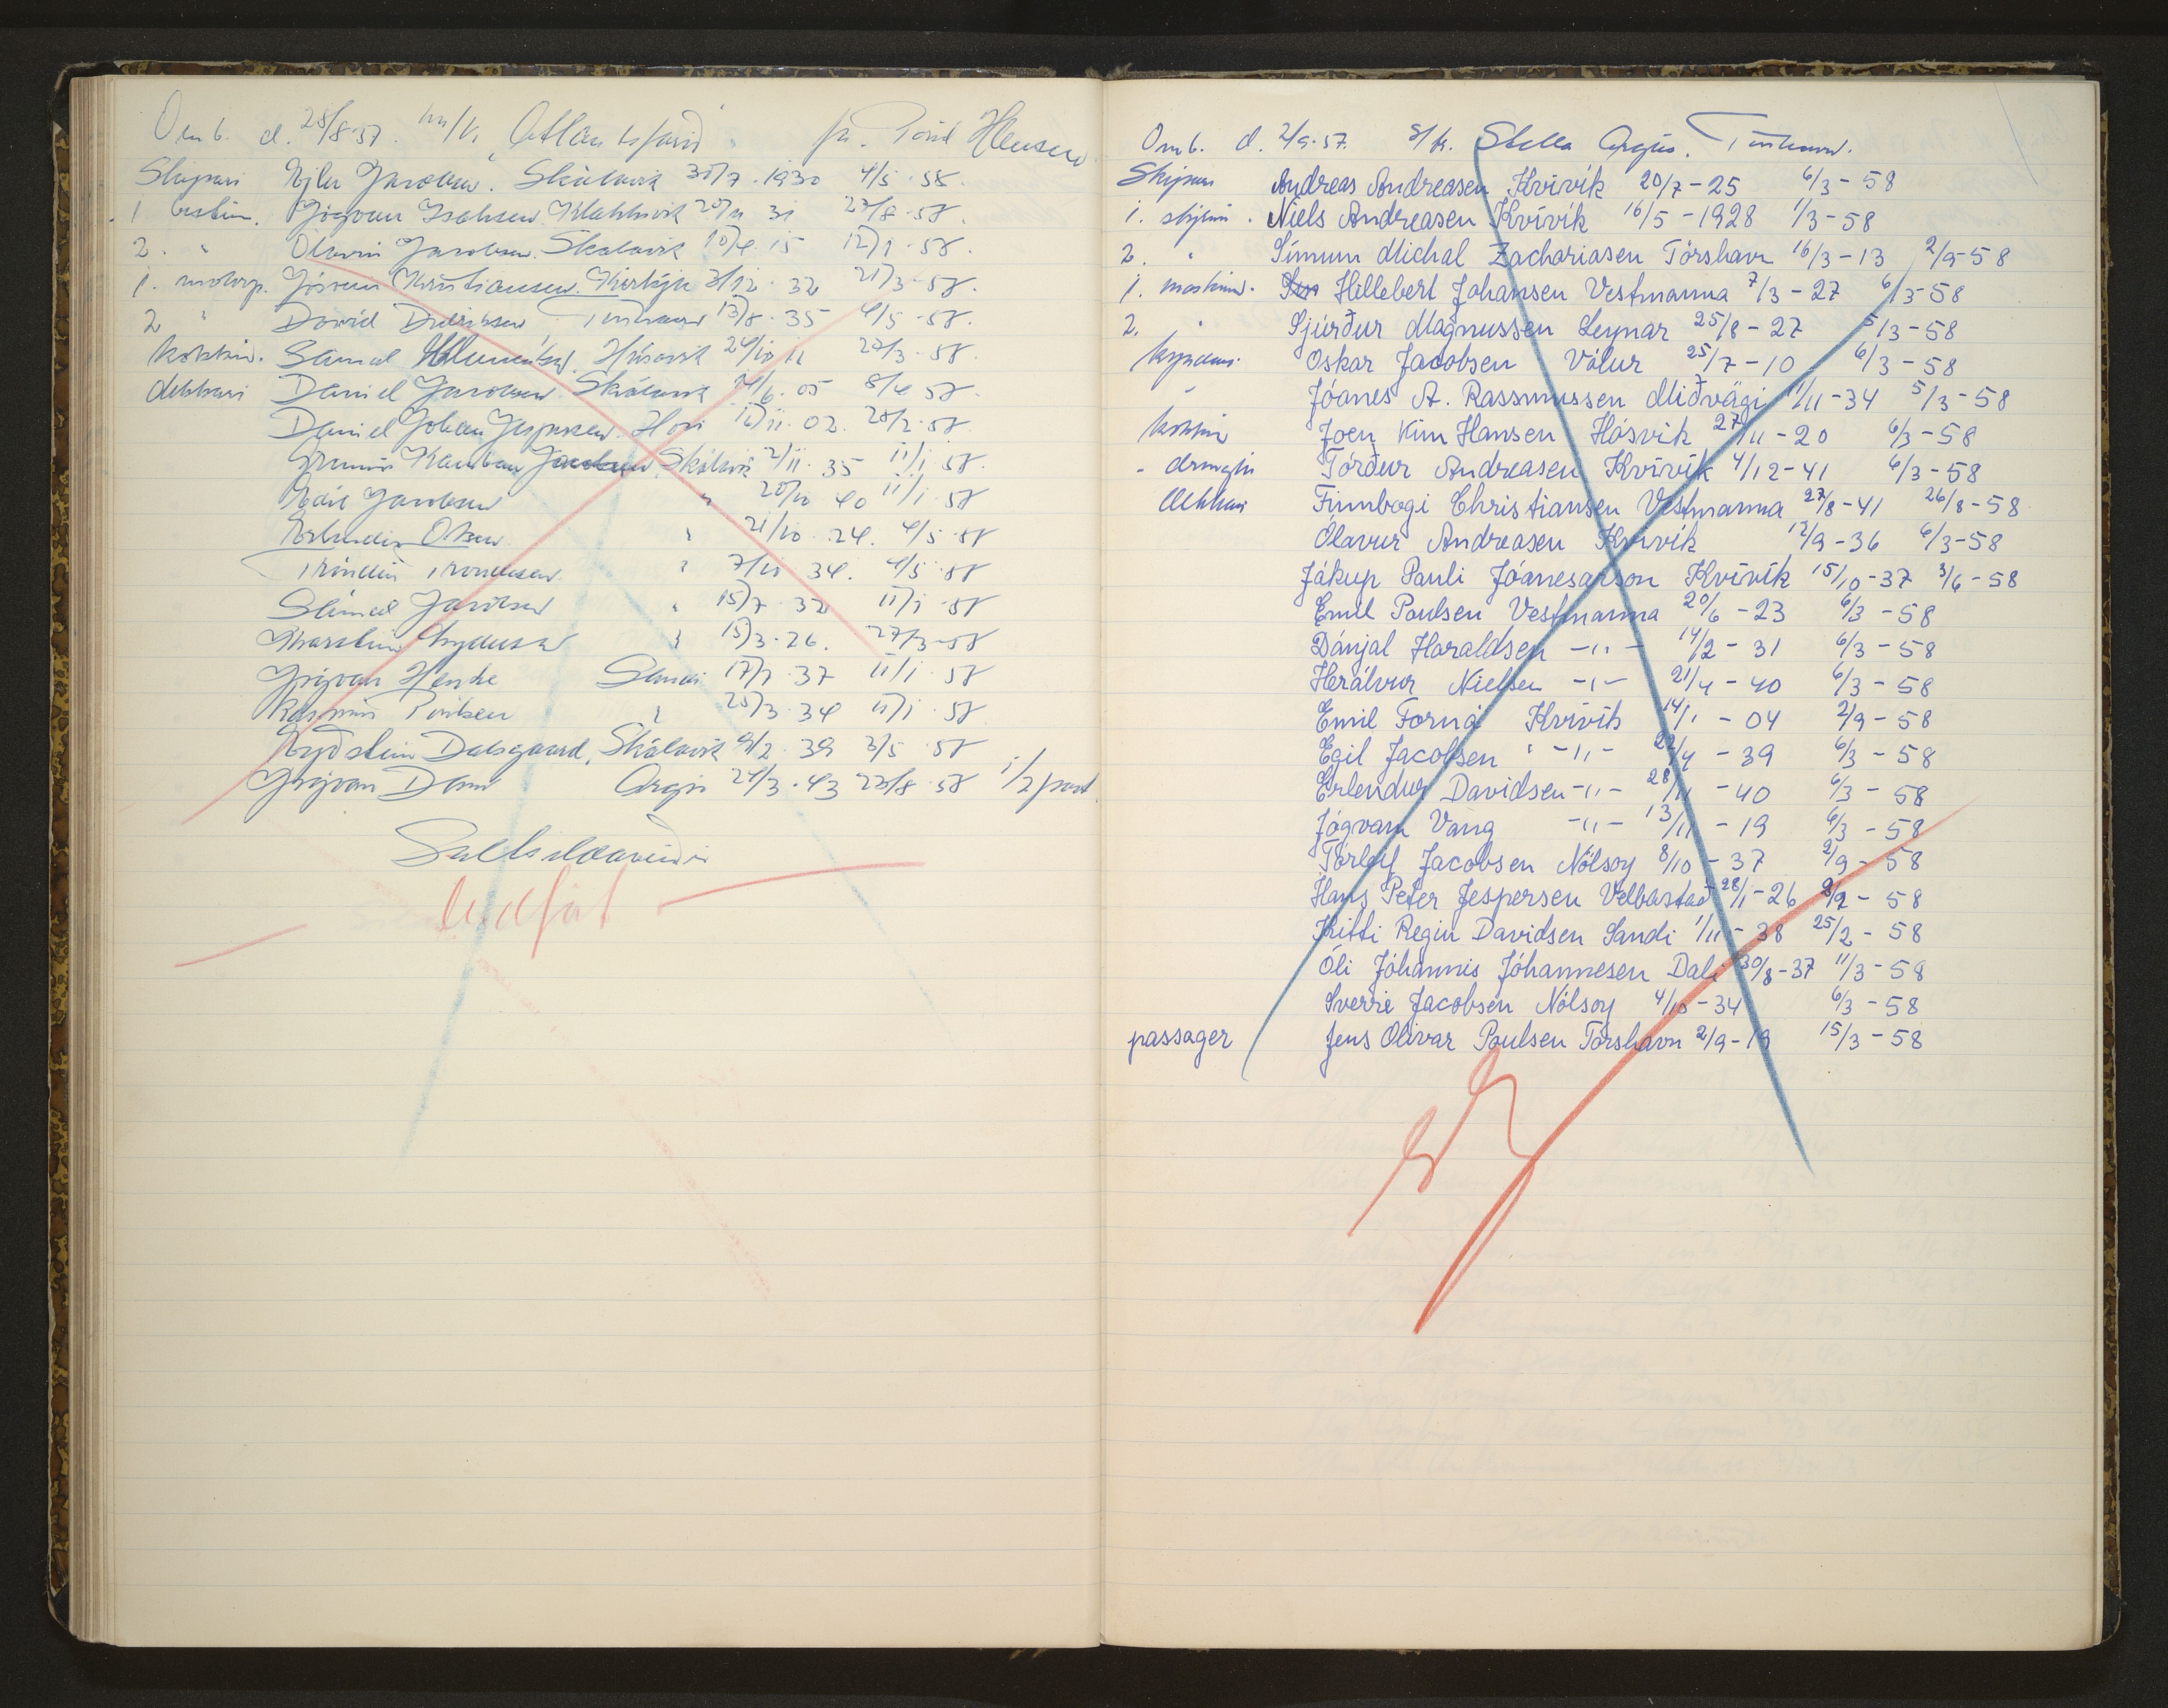 Omb. d. 28/8-57. m/k. Atlantsfarið
Skipari Ejler Jacobsen. Skálavík 30/7.1930 4/5.58.
1 bestim. Jógvan Isaksen Klakksvík 20/11 31 27/8.58.
2. " Ólavur Jacobsen. Skálavík 10/4.15 12/1.58.
1. motorp. Kristiansen. 3/12.32 21/3-58.
2 " David Didriksen Tórshavn 13/8.35 4/5.58.
kokkur. Sámal Klementsen. Húsavík 24/10 27/3.58.
dekkari Daniel Jacobsen Skálavík 05 8/4 58.
Daniel Johan Jespersen 12/11.02. 28/2.58.
Jacobsen Skálavík 2/11.35 11/1.58.
Jacobsen " 20/10 40 11/1.58
Erlendur Olsen " 21/10.24. 4/5.58
Tróndur Trondesen. " 7/10 34. 4/5.58
Sámal Jacobsen " 15/7.32 11/1.58
" 15/3.26. 27/3-58
Jógvan Henke Sandi 17/7.37 11/1.58
Rasmus Poulsen " 25/3.34 11/1.58
Dalsgaard, Skálavík 9/2.39 3/5.58
Jógvan Dam Argir 24/3.43 23/8.58 1/2 part
Omb. d. 2/9-57. s/k. Stella Argus. Tórshavn.
Skipari Andreas Andreasen Kvívík 20/7-25 6/3-58
1. stýrim. Niels Andreasen Kvívík 16/5-1928 1/3-58
2. " Símun Michal Zachariasen Tórshavn 16/3-13 2/9-58
1. maskinm. Hillebert Johansen Vestmanna 7/3-27 6/3-58
2. " Sjúrður Magnussen Leynar 25/8-27 5/3-58
kyndari Oskar Jacobsen Válur 25/7-10 6/3-58
" Jóanes A. Rassmussen Miðvági 1/11-34 5/3-58
kokkur Joen Kim Hansen Hósvík 27/11-20 6/3-58
- drongin Tórður Andreasen Kvívík 4/12-41 6/3-58
dekkari Finnbogi Christiansen Vestmanna 27/8-41 26/8-58
Ólavur Andreasen Kvívík 12/9-36 6/3-58
Jákup Pauli Jóanesarson Kvívík 15/10-37 3/6-58
Emil Poulsen Vestmanna 20/6-23 6/3-58
Dánjal Haraldsen -"- 14/2-31 6/3-58
Herálvur Nielsen -"- 21/4-40 6/3-58
Emil Forná Kvívík 14/1-04 2/9-58
Egil Jacobsen -"- 22/4-39 6/3-58
Erlendur Davidsen -"- 28/11-40 6/3-58
Jógvan Vang -"- 13/11-19 6/3-58
Tórleif Jacobsen Nólsoy 8/10-37 2/9-58
Hans Peter Jespersen Velbastað 28/1-26 2/9-58
Kitti Regin Davidsen Sandi 1/11-38 25/2-58
Óli Jóhannis Jóhannesen Dali 30/8-37 11/3-58
Sverri Jacobsen Nólsoy 4/10-34 6/3-58
passager Jens Olivar Poulsen Tórshavn 2/9-19 15/3-58